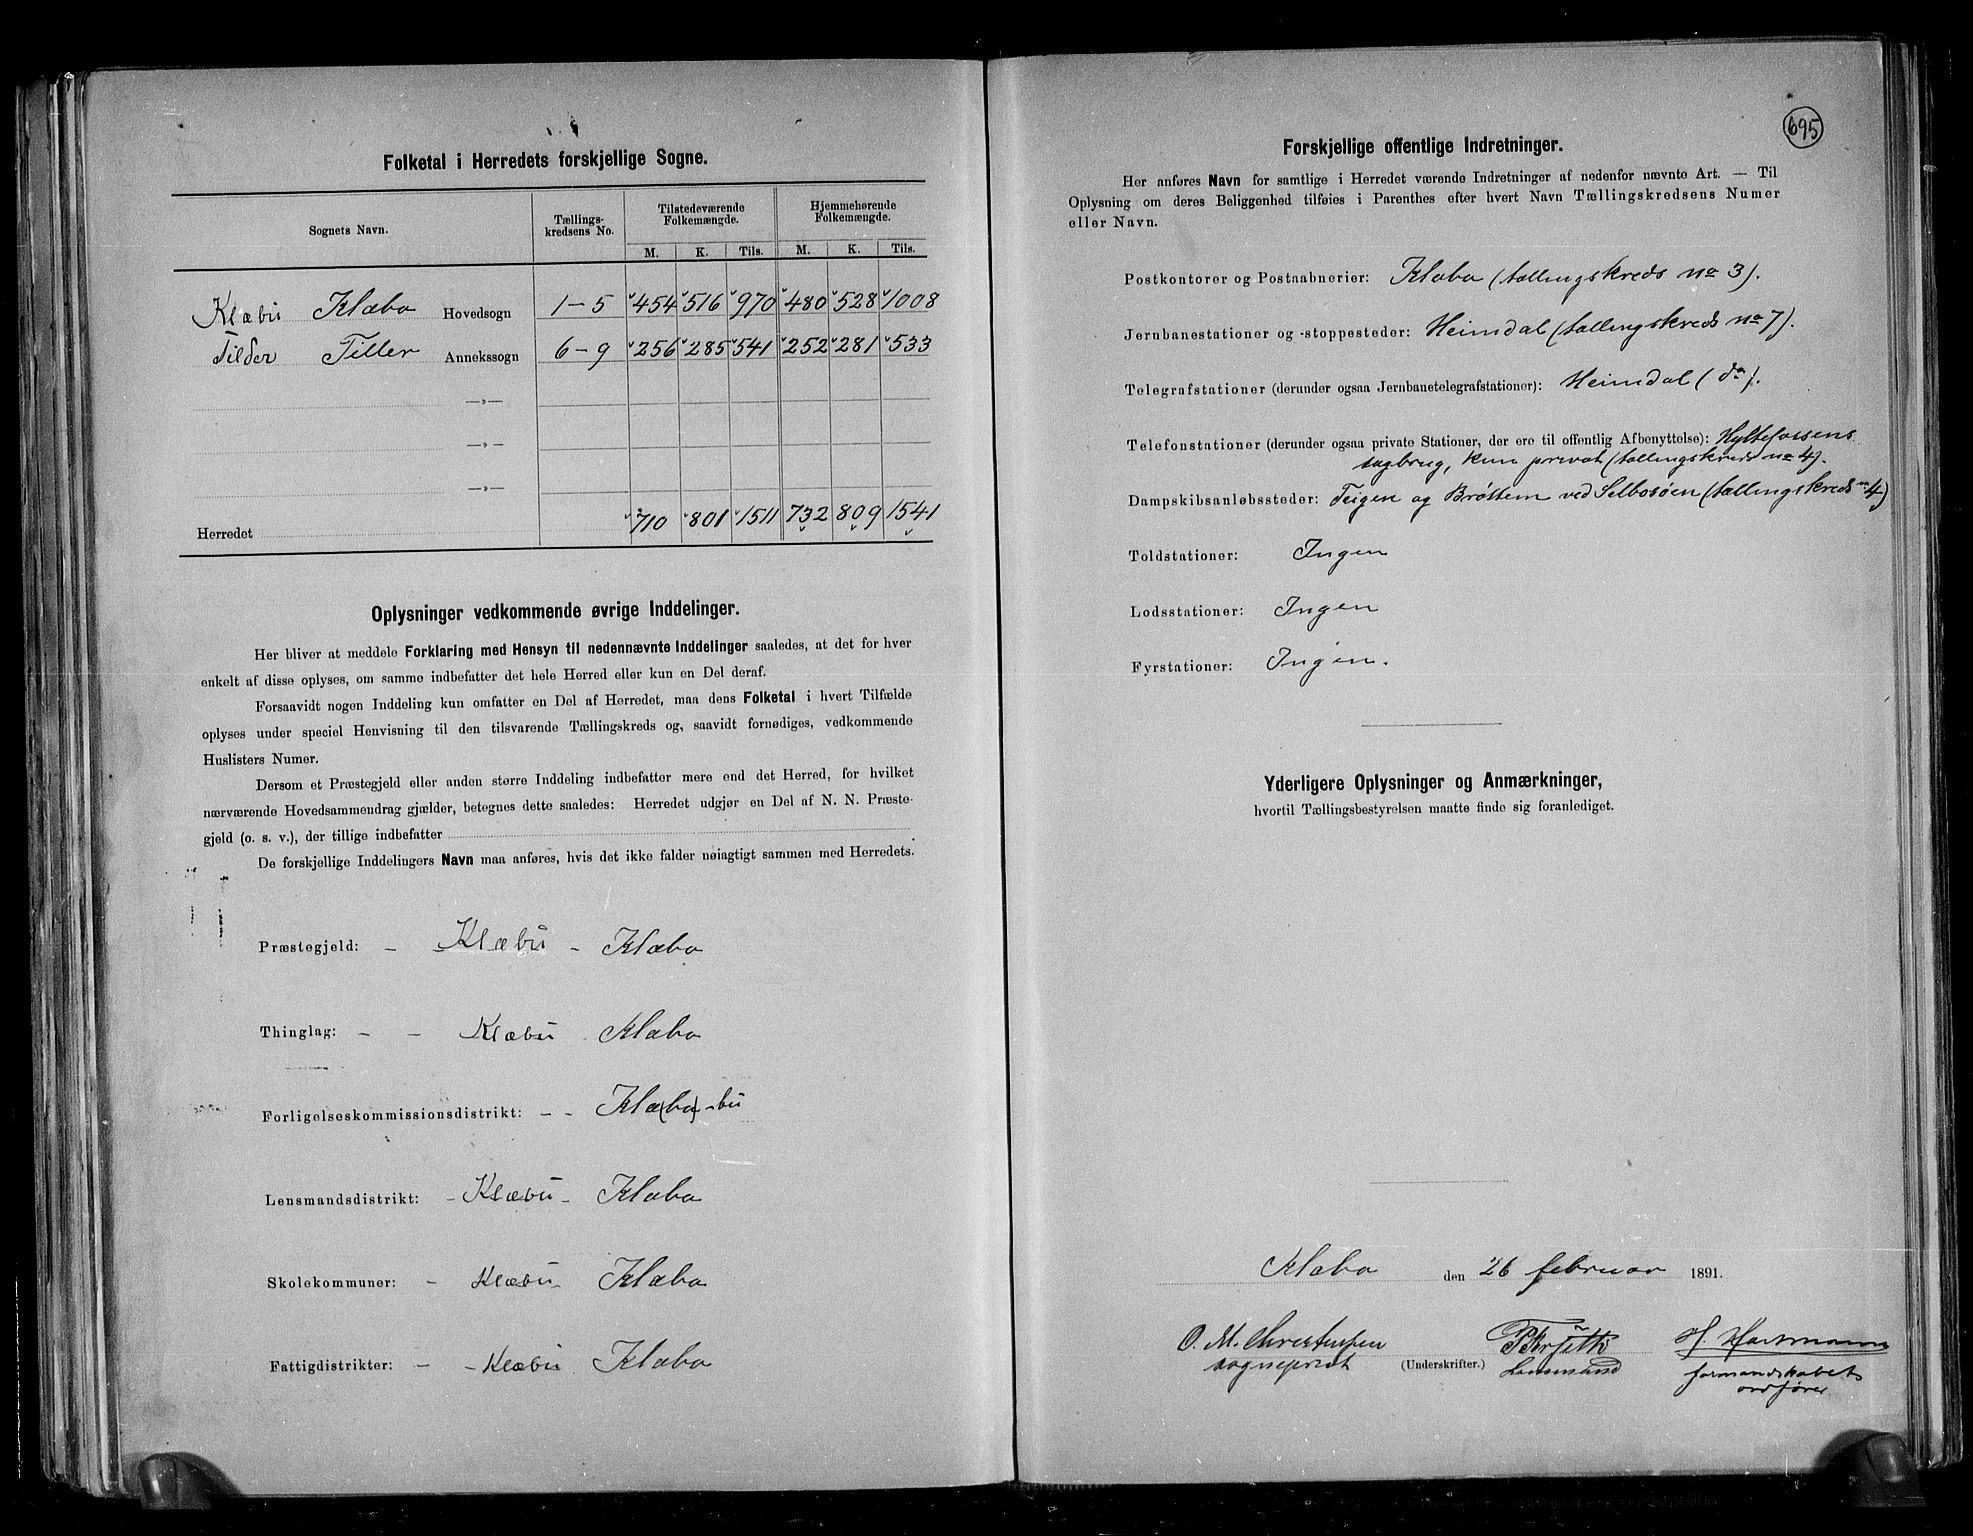 Folketal i Herredets forskjellige Sogne.
Sognets Navn. Tællings-kredsens No. Tilstedeværende Folkemængde. Hjemmehørende Folkemængde.
M. K. Tils. M. K. Tils.
Klæbu Klæbo Hovedsogn 1-5 454 516 970 480 528 1008
Tilder Tiller Annekssogn 6-9 256 285 541 252 281 533
—„—
—„—
—„—
Herredet 710 801 1511 732 809 1541
Oplysninger vedkommende øvrige Inddelinger.
Her bliver at meddele Forklaring med Hensyn til nedennævnte Inddelinger saaledes, at det for hver
enkelt af disse oplyses, om samme indbefatter det hele Herred eller kun en Del deraf.
Forsaavidt nogen Inddeling kun omfatter en Del af Herredet, maa dens Folketal i hvert Tilfælde
oplyses under speciel Henvisning til den tilsvarende Tællingskreds og, saavidt fornødiges, vedkommende
Huslisters Numer.
Dersom et Præstegjeld eller anden større Inddeling indbefatter mere end det Herred, for hvilket
nærværende Hovedsammendrag gjælder, betegnes dette saaledes: Herredet udgjør en Del af N. N. Præste-
gjeld (o. s. v.), der tillige indbefatter
De forskjellige Inddelingers Navn maa anføres, hvis det ikke falder nøiagtigt sammen med Herredets.
Præstegjeld: - Klæbu - Klæbo
Thinglag: - - Klæbu Klæbo
Forligelseskommissionsdistrikt: - - Klæ(bo) -bu
Lensmandsdistrikt: - Klæbu - Klæbo
Skolekommuner: - Klæbu - Klæbo
Fattigdistrikter: - - Klæbu Klæbo
695
Forskjellige offentlige Indretninger.
Her anføres Navn for samtlige i Herredet værende Indretninger af nedenfor nævnte Art. — Til
Oplysning om deres Beliggenhed tilføies i Parenthes efter hvert Navn Tællingskredsens Numer
eller Navn.
Postkontorer og Postaabnerier: Klæbo (tællingskreds no 3).
Jernbanestationer og -stoppesteder: Heimdal (tællingskreds no 7).
Telegrafstationer (derunder ogsaa Jernbanetelegrafstationer): Heimdal (do).
Telefonstationer (derunder ogsaa private Stationer, der ere til offentlig Afbenyttelse): Hyttefossens
sagbrug, kun privat (tællingskreds no 4).
Dampskibsanløbssteder: Teigen og Brøttem ved Selbosøen (tællingskreds no 4)
Toldstationer: Ingen
Lodsstationer: Ingen
Fyrstationer: Ingen.
Yderligere Oplysninger og Anmærkninger,
hvortil Tællingsbestyrelsen maatte finde sig foranlediget.
Klæbo den 26 februar 1891.
O. M. H. Hartmann
sogneprest (Underskrifter.) Lensmand formandskabets
ordfører